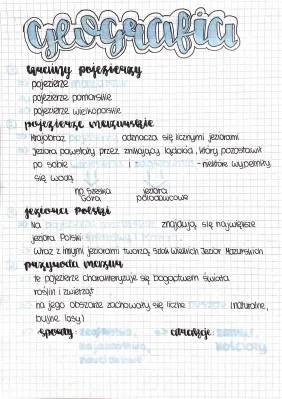 geografia
krainy pojezierzy
pojezierze
pojezierze pomorskie
pojezierze wielkopolskie
pojezierze mazurskie
Krajobraz odznacza się licznymi jeziorami
Jeziora powstały przez znikający lądolód, który pozostawił
po sobie i - niektóre wypełniły
się wodą
np. Szeska Góra jeziora polodowcowe
jeziora Polski
Na znajdują się największe
jeziora Polski
Wraz z innymi jeziorami tworzą Szlak Wielkich Jezior Mazurskich
przyroda mazur
te pojezierze charakteryzuje się bogactwem świata
roślin i zwierząt
na jego obszarze zachowały się liczne (naturalne,
bujne lasy)
sporty: atrakcje: